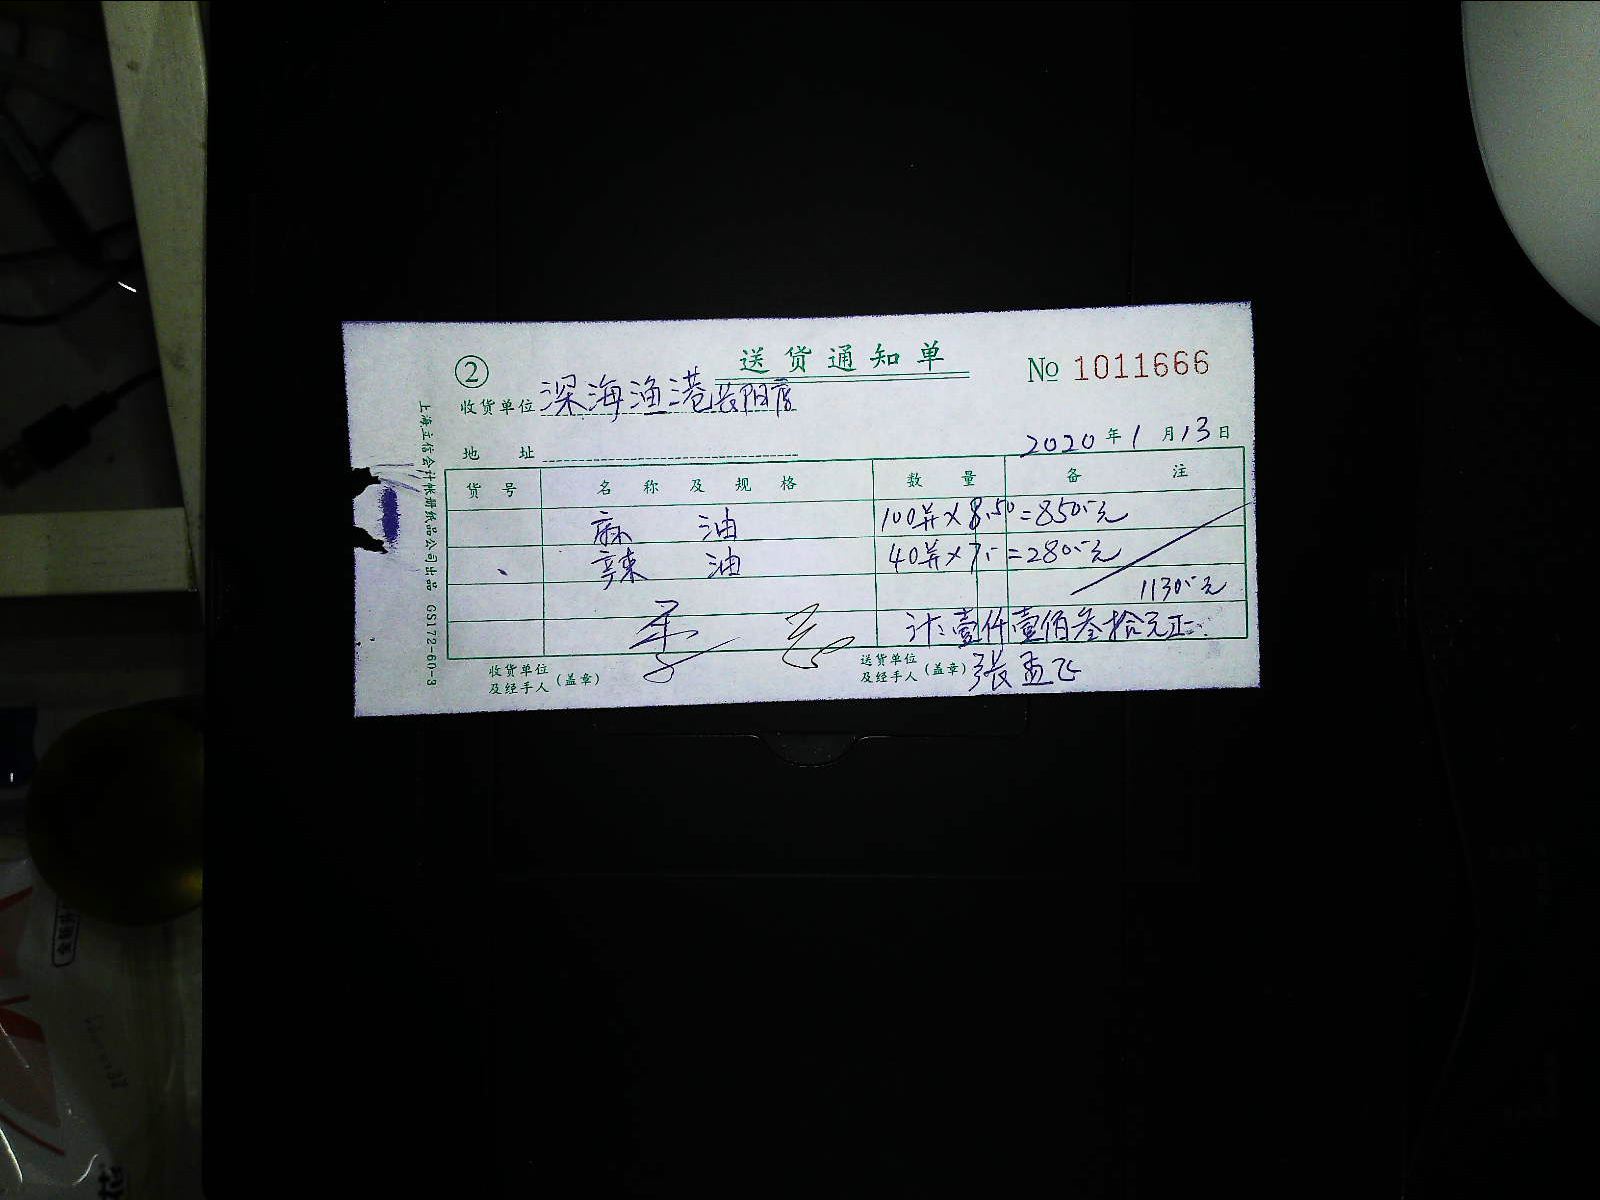 送货通知单
② No 1011666
收货单位 深海渔港长阳店
地址
2020年1月13日
货号 名称及规格 数量 备注
麻油 100并×8.50=850.-元
辣油 40并×7.-=280.-元
1130.-元
计:壹仟壹佰叁拾元正
收货单位及经手人(盖章)
送货单位及经手人(盖章) 張孟飞
上海立信会计帐册纸品公司出品 GS172-60-3